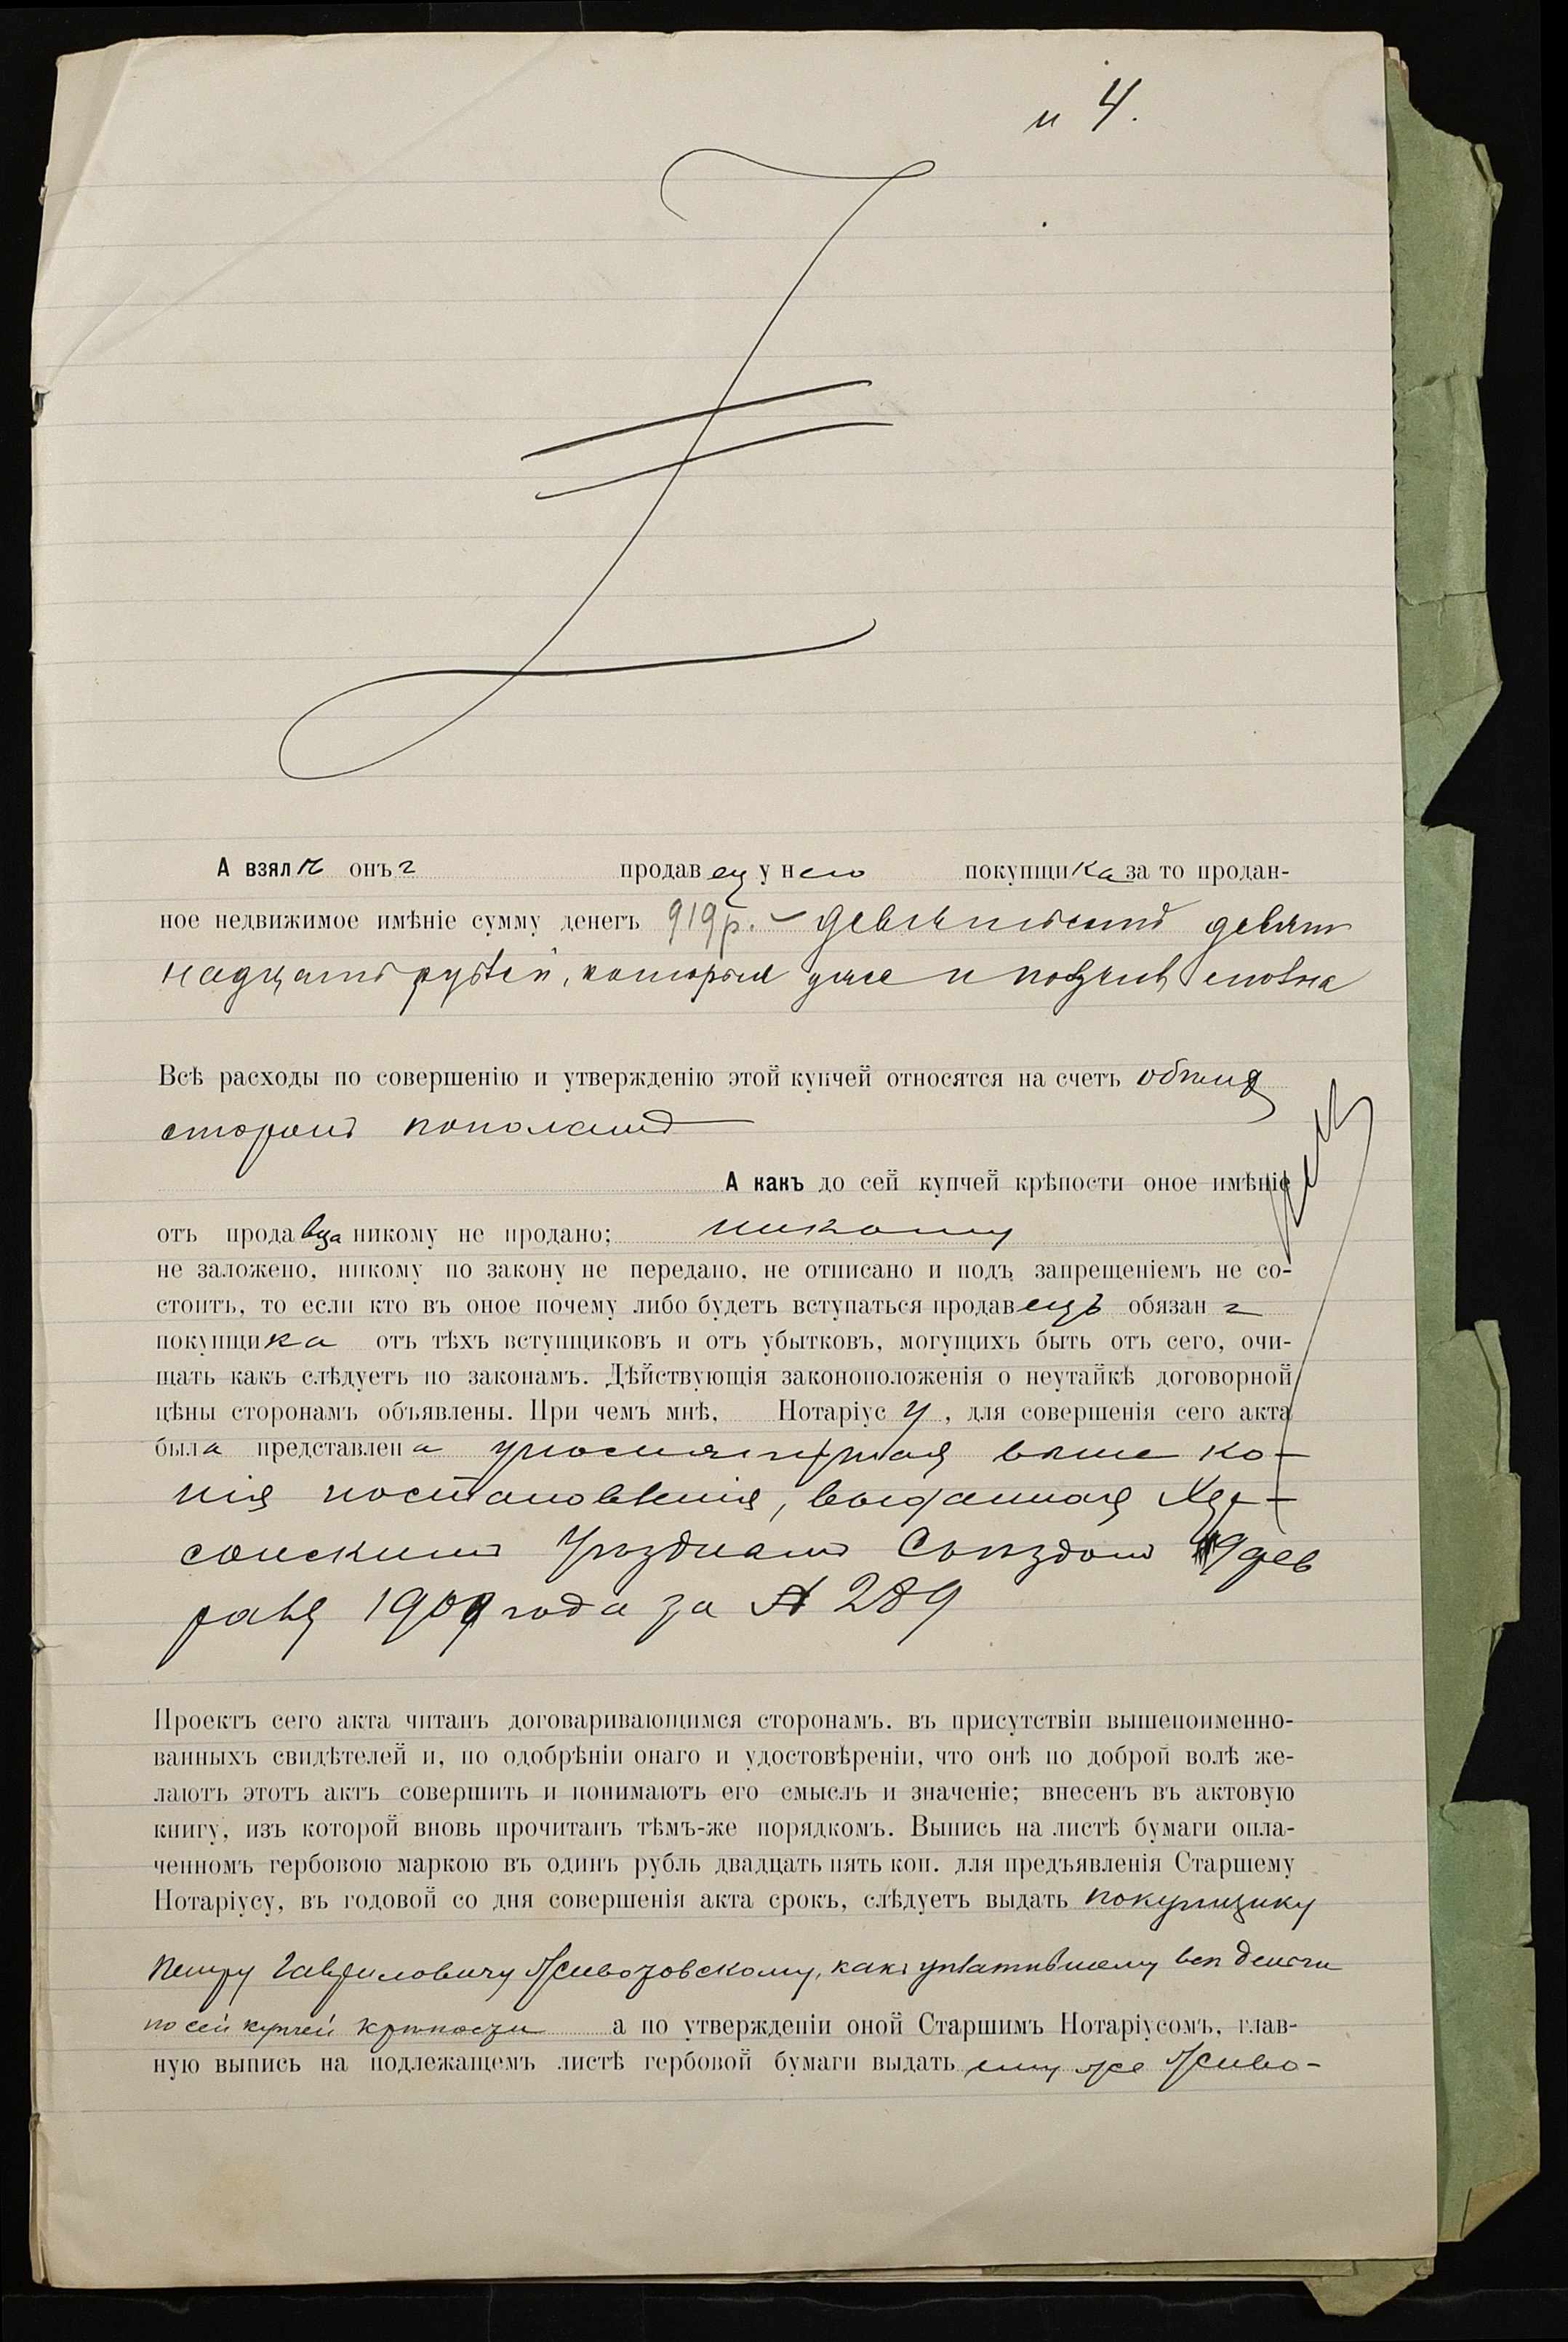 и 4.
А взялъ онъ продавец у него покупщика за то продан-
ное недвижимое имѣніе сумму денегъ 919 р. – девятьсотъ девят
надцать рублей, которыя уже и получилъ сполна
Всѣ расходы по совершенію и утвержденію этой купчей относятся на счетъ обѣихъ
сторонъ пополамъ
А какъ до сей купчей крѣпости оное имѣніе
отъ продавца никому не продано; никому
не заложено, никому по закону не передано, не отписано и подъ запрещеніемъ не со-
стоитъ, то если кто въ оное почему либо будетъ вступаться продавецъ обязан
покупщика отъ тѣхъ вступщиковъ и отъ убытковъ, могущихъ быть отъ сего, очи-
щать какъ слѣдуетъ по законамъ. Дѣйствующія законоположенія о неутайкѣ договорной
цѣны сторонамъ объявлены. При чемъ мнѣ, Нотаріусу, для совершенія сего акта
была представлена упомянутая выше ко-
пія постановленія, выданная Хер-
сонскимъ Уѣзднымъ Съѣздомъ 9 фев
раля 1909 года за № 289
Проектъ сего акта читанъ договаривающимся сторонамъ. въ присутствіи вышепоименно-
ванныхъ свидѣтелей и, по одобрѣніи онаго и удостовѣреніи, что онѣ по доброй волѣ же-
лаютъ этотъ актъ совершить и понимаютъ его смыслъ и значеніе; внесенъ въ актовую
книгу, изъ которой вновь прочитанъ тѣмъ-же порядкомъ. Выпись на листѣ бумаги опла-
ченномъ гербовою маркою въ одинъ рубль двадцать пять коп. для предъявленія Старшему
Нотаріусу, въ годовой со дня совершенія акта срокъ, слѣдуетъ выдать покупщику
Петру Гавриловичу как уплатившему всѣ деньги
по сей купчей крѣпости а по утвержденіи оной Старшимъ Нотаріусомъ, глав-
ную выпись на подлежащемъ листѣ гербовой бумаги выдать ему же